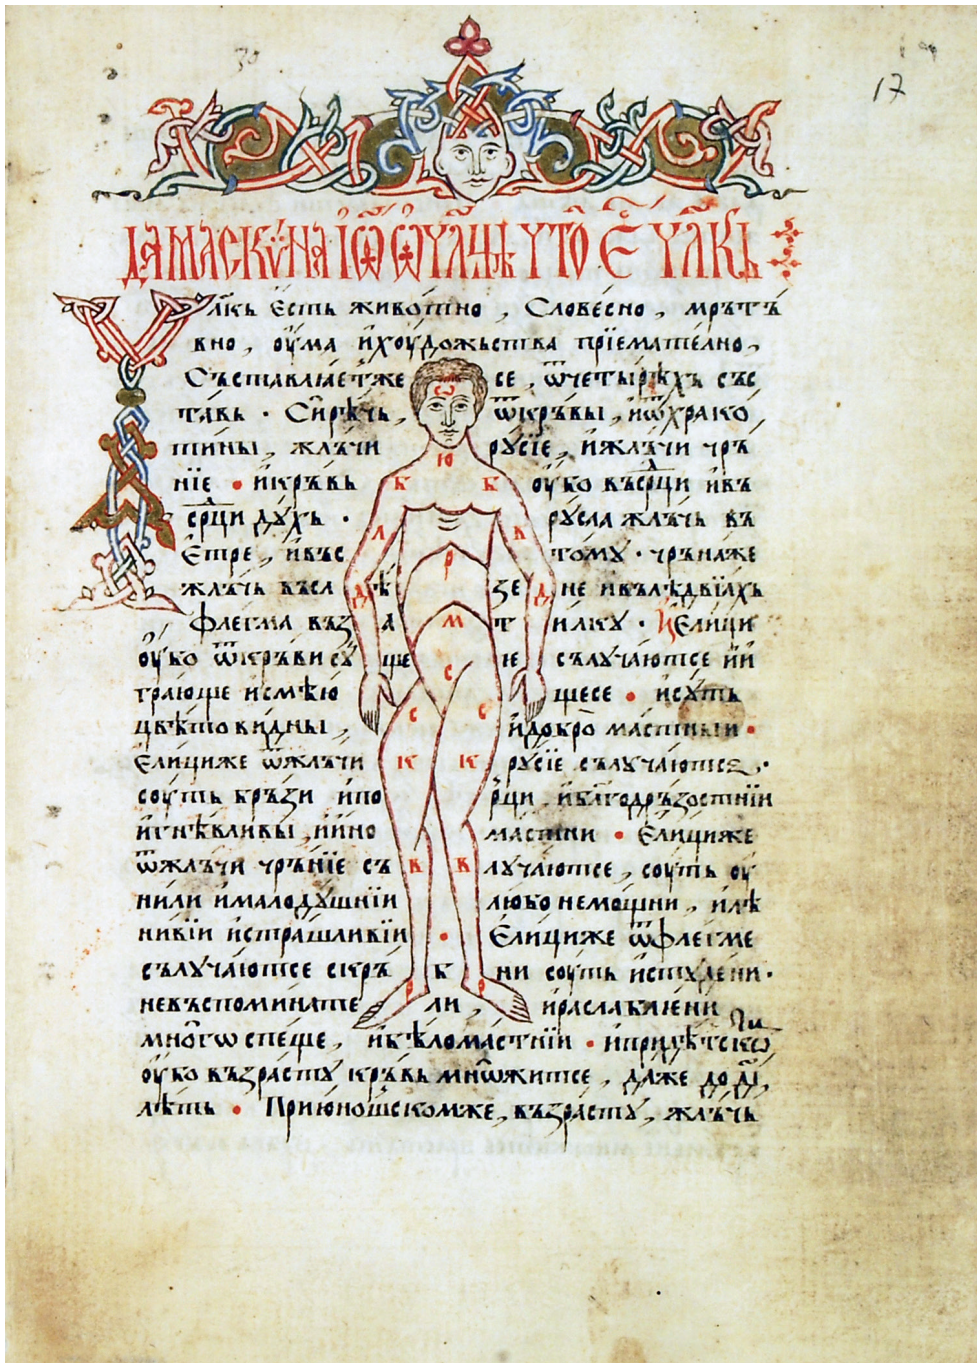 17
ДАМАСКѴНА ІѠ҃ Ѡ ЧЛ҃ЦѢ ЧТО Е҃ ЧЛ҃КЬ
Чл҃кь ѥсть животно, словесно, мрътъ
вно, оума и хоудожьства прїемателно,
Съставлꙗет же се, ѿ четырѣхь със
тавь · Сирѣчь, ѿ кръвы, и ѿ храко
тины, жлъчи русїе, и жлъчи чръ
нїе • и кръвь оуко въ ср҃ци и въ
ср҃ци духь · русла жлъчь въ
ѥтре, и въ с томоу · чрънаже
жлъчь въ сл ѣзене и въ лѣдвїахь
флегма въ затилкоу · Ѥлици
оуко ѿ кръви соуще н сълучаютсе и
грающе и смѣющесе • и соуть
цвѣтовидны, и добро мастныи •
Ѥлициже ѿ жлъчи русїе сълучаютсе ·
соуть бръзи и по рци и бл҃годръзостнїи
и гнѣвливы, и ино мастни • Ѥлициже
ѿ жлъчи чрънїе сълучаютсе, соуть оу
нили и малодушнїи любонемощни, и лѣ
нивїи и страшливїи • Ѥлициже ѿ флегме
сълучаютсе скръбни соуть и студени ·
невъспоминателни, и раслаблени
много спеще, и бѣломастнїи • и придѣтско
оуко възрасту кръвь множитсе, даже до д҃і
лѣть • При юношьском же, възрасту, жлъчь